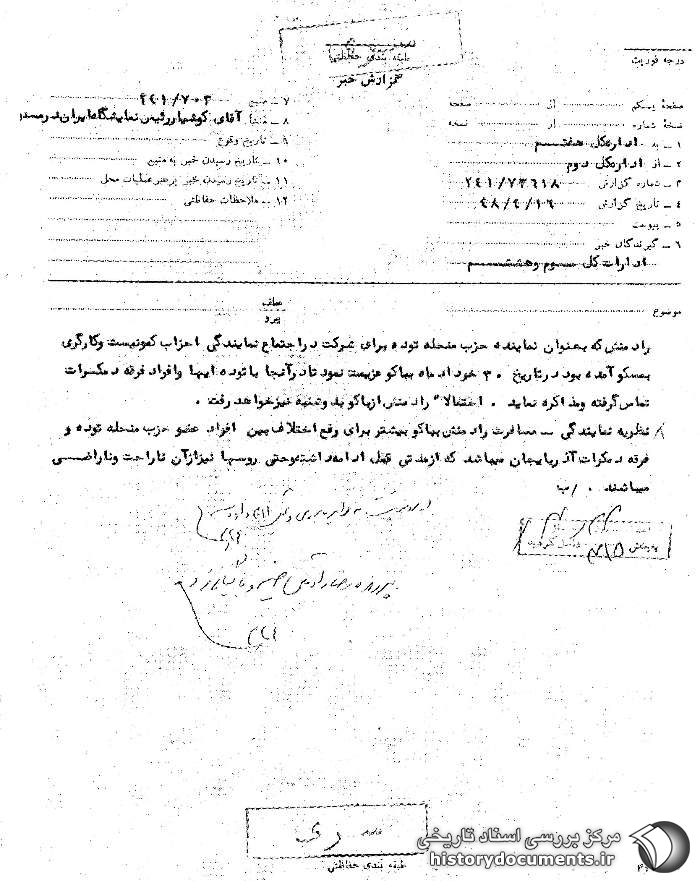 طبقه بندی حفاظتی
گزارش خبر
درجه فوریت
صفحهٔ یکم از صفحه
نسخهٔ شماره از نسخه
۱ ـ به اداره‌کل هفتم
۲ ـ از اداره‌کل دوم
۳ ـ شماره گزارش ۲۴۱/۷۳۶۱۸
۴ ـ تاریخ گزارش ۴۸/۴/۱۶
۵ ـ پیوست
۶ ـ گیرندگان خبر
ادارات کل سوم و هشتم
۷ ـ منبع ۲۴۱/۷۰۳
۸ ـ منشأ آقای کوشیار رئیس نمایشگاه ایران در مسکو
۹ ـ تاریخ وقوع
۱۰ ـ تاریخ رسیدن خبر به منبع
۱۱ ـ تاریخ رسیدن خبر برهبر عملیات محل
۱۲ ـ ملاحظات حفاظتی
موضوع
عطف
پیرو
رادمنش که بعنوان نماینده حزب منحله توده برای شرکت در اجتماع نمایندگی احزاب کمونیست و کارگری
بمسکو آمده بود در تاریخ ۳۰ خرداد ماه بباکو عزیمت نمود تا در آنجا با توده ایها و افراد فرقه دمکرات
تماس گرفته و مذاکره نماید . احتمالاً رادمنش از باکو به دوشنبه نیز خواهد رفت .
نظریه نمایندگی ـ مسافرت رادمنش بباکو بیشتر برای رفع اختلاف بین افراد عضو حزب منحله توده و
فرقه دمکرات آذربایجان میباشد که از مدتی قبل ادامه داشته و حتی روسها نیز از آن ناراحت و ناراضی
میباشند . /ب
طبقه بندی حفاظتی
مرکز بررسی اسناد تاریخی
historydocuments.ir